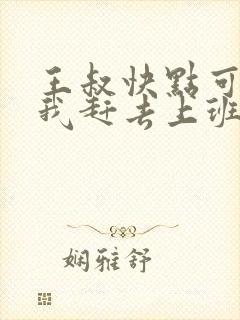 王叔快點可
我赶去上班
娴雅舒